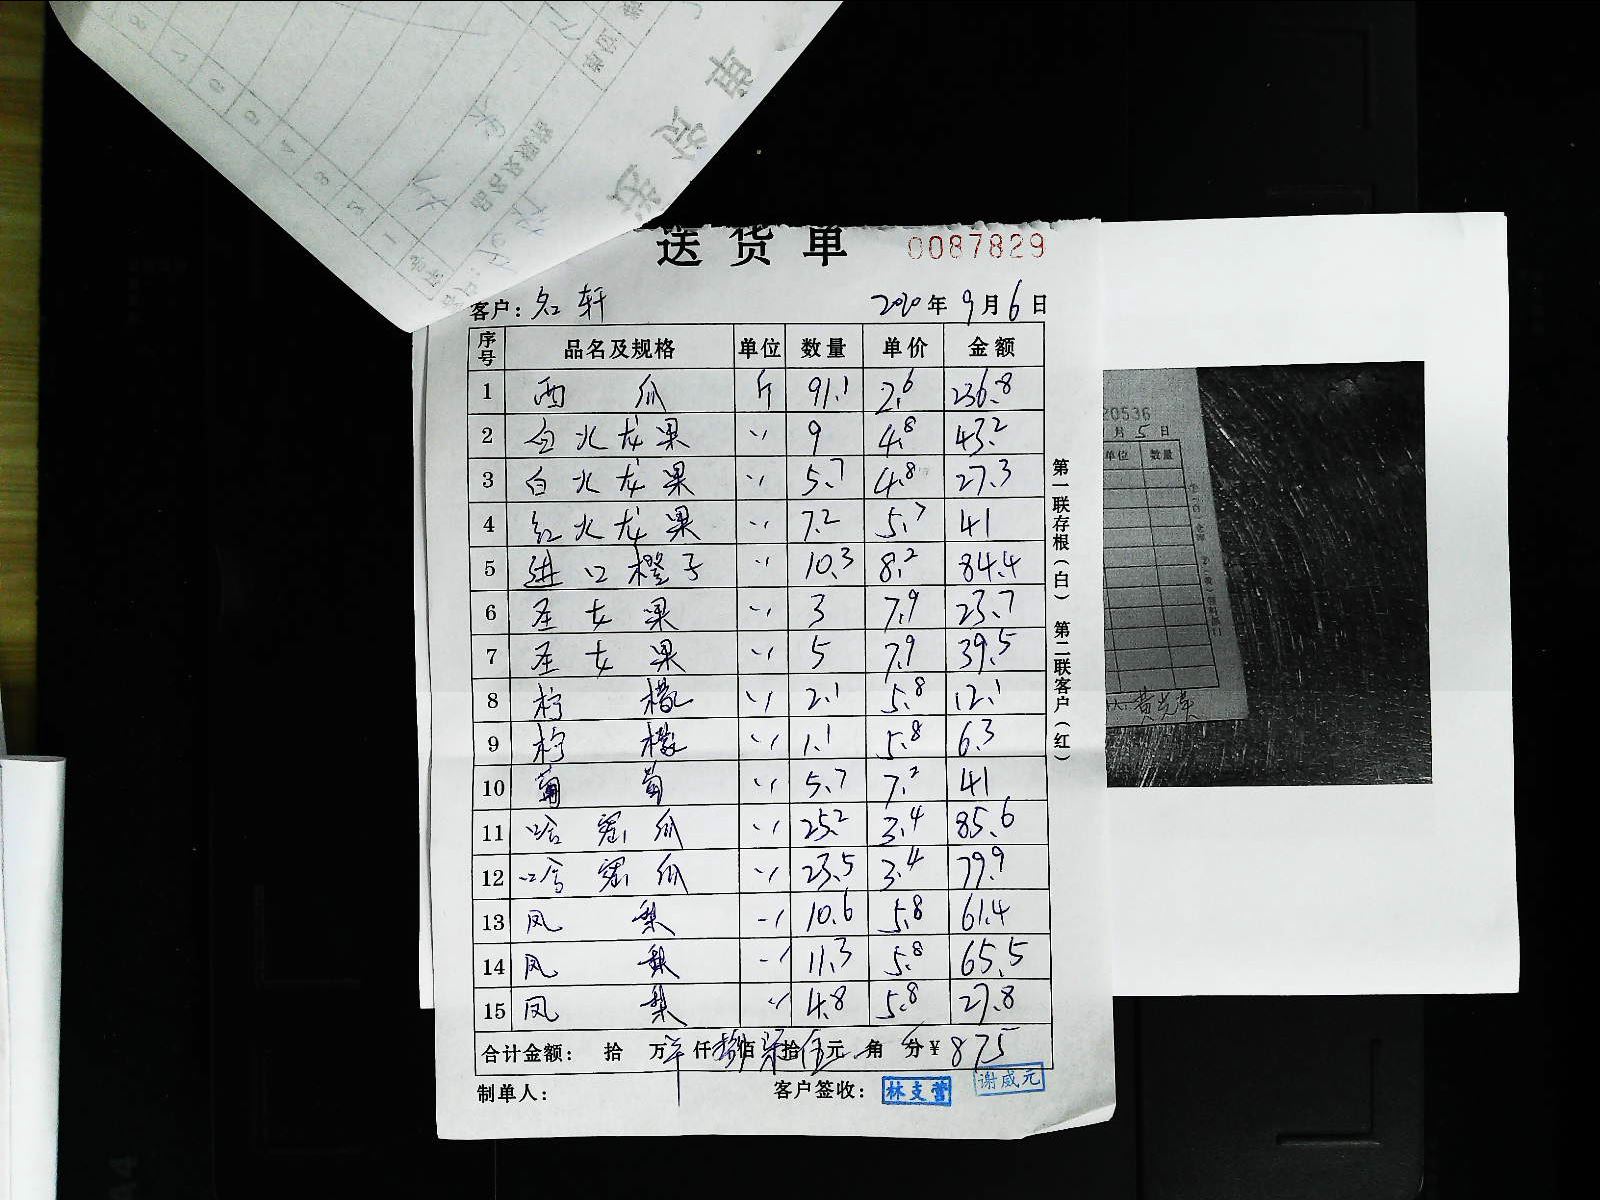 送货单 0087829
客户: 名轩 2020年9月6日
序号 品名及规格 单位 数量 单价 金额
1 西瓜 斤 91.1 2.6 236.8
2 白火龙果 〃 9 4.8 43.2
3 白火龙果 〃 5.7 4.8 27.3
4 红火龙果 〃 7.2 5.7 41
5 进口橙子 〃 10.3 8.2 84.4
6 圣女果 〃 3 7.9 23.7
7 圣女果 〃 5 7.9 39.5
8 柠檬 〃 2.1 5.8 12.1
9 柠檬 〃 1.1 5.8 6.3
10 葡萄 〃 5.7 7.2 41
11 哈密瓜 〃 25.2 3.4 85.6
12 哈密瓜 〃 23.5 3.4 79.9
13 凤梨 〃 10.6 5.8 61.4
14 凤梨 〃 11.3 5.8 65.5
15 凤梨 〃 4.8 5.8 27.8
合计金额: 拾 万 仟捌佰柒拾伍元 角 分¥ 875
制单人: 客户签收: 林支蕾 谢威元
第一联存根(白) 第二联客户(红)
20536
月5日
单位 数量